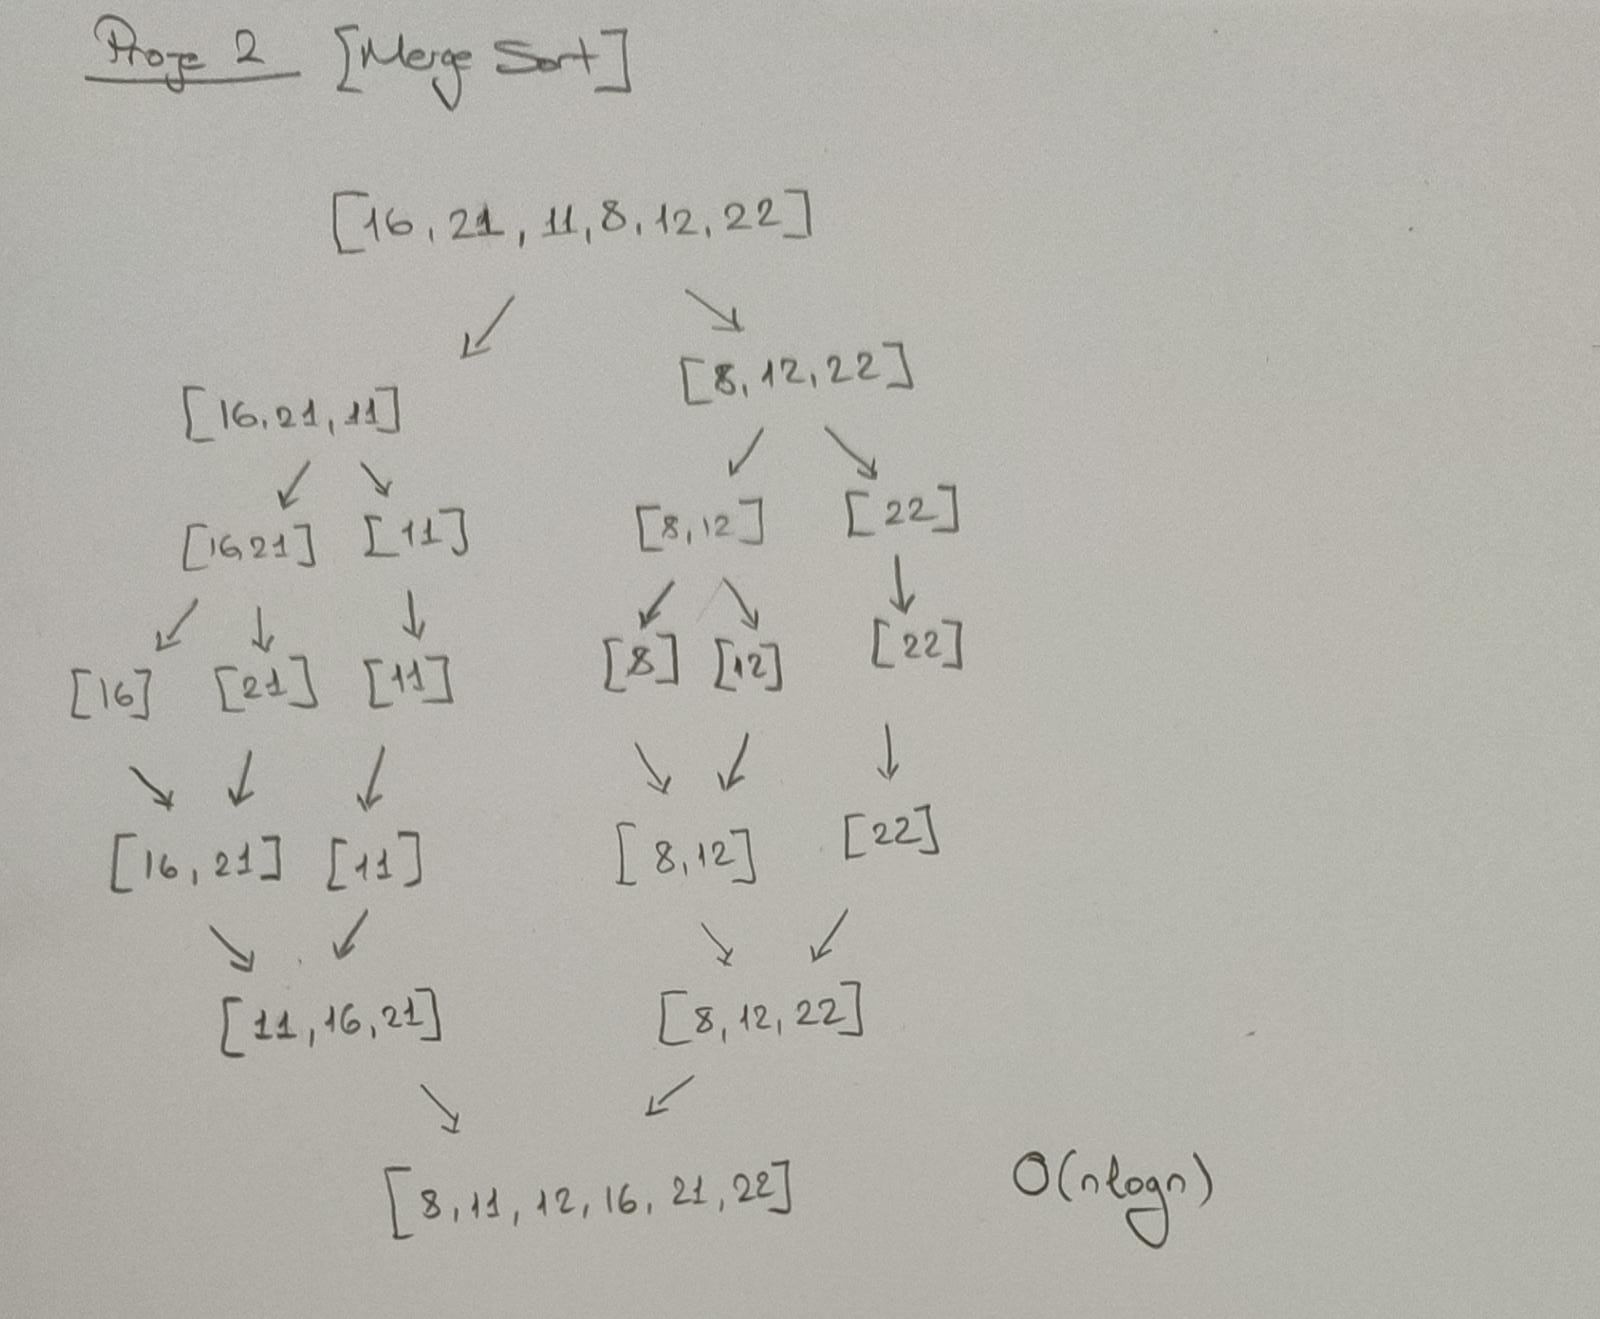 Proje 2 [Merge Sort]
[16, 21, 11, 8, 12, 22]
[16, 21, 11] [8, 12, 22]
[16 21] [11] [8, 12] [22]
[16] [21] [11] [8] [12] [22]
[16, 21] [11] [8, 12] [22]
[11, 16, 21] [8, 12, 22]
[8, 11, 12, 16, 21, 22] O(nlogn)